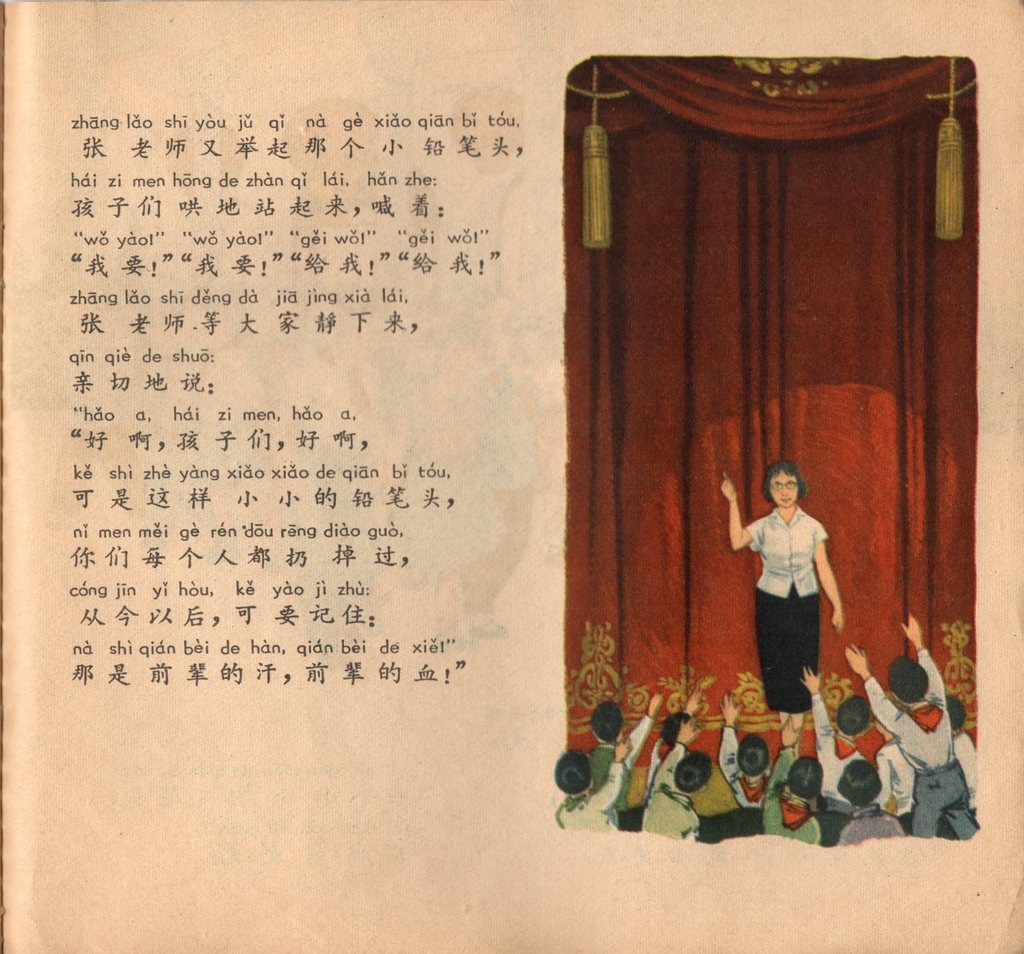 zhāng lǎo shī yòu jǔ qǐ nà gè xiǎo qiān bǐ tóu,
张老师又举起那个小铅笔头，
hái zi men hōng de zhàn qǐ lái, hǎn zhe:
孩子们哄地站起来，喊着：
“wǒ yào!” “wǒ yào!” “gěi wǒ!” “gěi wǒ!”
“我要！”“我要！”“给我！”“给我！”
zhāng lǎo shī děng dà jiā jìng xià lái,
张老师等大家静下来，
qīn qiè de shuō:
亲切地说：
“hǎo a, hái zi men, hǎo a,
“好啊，孩子们，好啊，
kě shì zhè yàng xiǎo xiǎo de qiān bǐ tóu,
可是这样小小的铅笔头，
nǐ men měi gè rén dōu rēng diào guò,
你们每个人都扔掉过，
cóng jīn yǐ hòu, kě yào jì zhù:
从今以后，可要记住：
nà shì qián bèi de hàn, qián bèi de xiě!”
那是前辈的汗，前辈的血！”